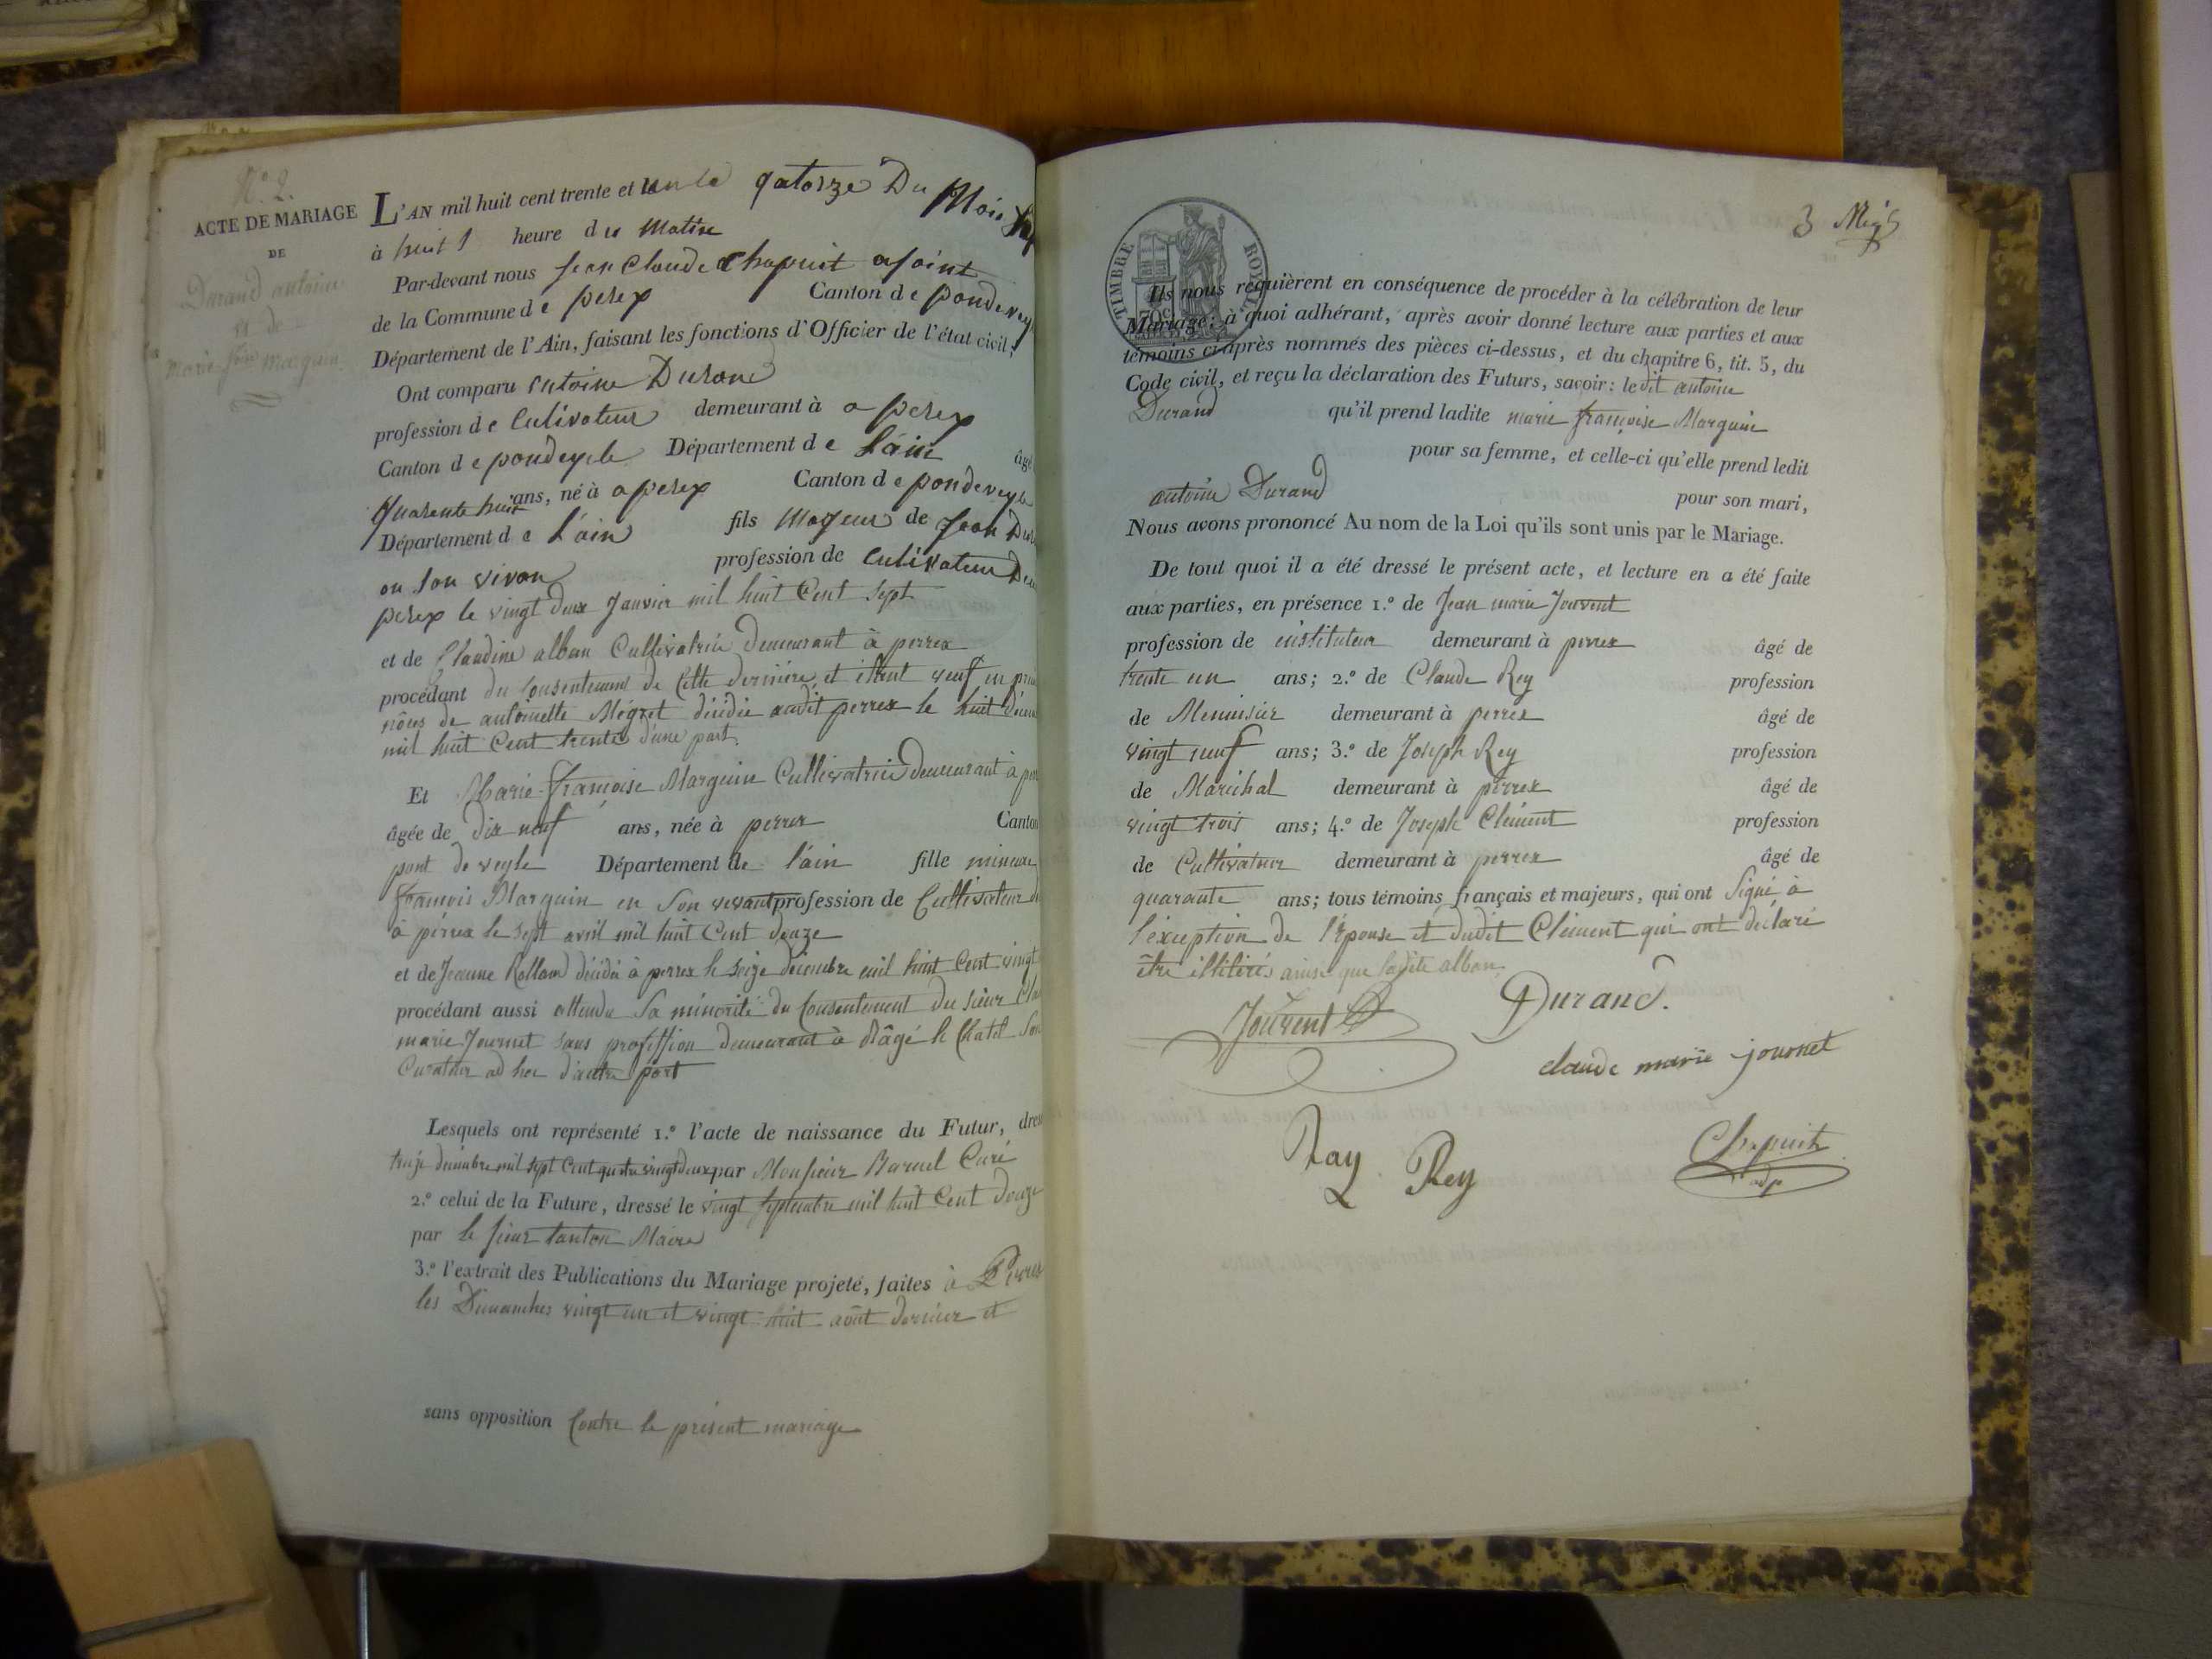 N.º 2.
ACTE DE MARIAGE
DE
Durand antoine
et de
marie f.oise marguin
L'AN mil huit cent trente et un le qatorze Du Mois
à huit heure du Matin
Par-devant nous jean Claude Chapuit ajoint
de la Commune de perex Canton de pondevey
Département de l'Ain, faisant les fonctions d'Officier de l'état civil,
Ont comparu antoine Durand
profession de Culivateur demeurant à a perex
Canton de pondeyele Département de L'ain âgé
Quarente huit ans, né à a perex Canton de pondeveyle
Département de L'ain fils Mageur de Jean Dur
on son vivan profession de Culivateur De
perex le vingt deux Janvier mil huit Cent Sept
et de Claudine alban Cultivatrice demeurant à perrex
procédant du Consentement de Cette dernière, et étant veuf en pre
nôces de antoinette Mégret décédée audit perrex le huit décem
mil huit Cent trente d'une part.
Et Marie françoise Marguin Cultivatrice demeurant à per
âgée de dix neuf ans, née à perrex Canton
pont de veyle Département de l'ain fille mineure
françois Marguin en Son vivant profession de Cultivateur d
à pérrex le sept avril mil huit Cent douze
et de Jeanne Rolland décédée à perrex le seize décembre mil huit Cent vingt
procédant aussi attendu Sa minorité du Consentement du sieur Cla
marie Journet sans profession demeurant à Bâgé le Chatel Son
Curateur ad hoc d'autre part
Lesquels ont représenté 1.º l'acte de naissance du Futur, dres
treize décembre mil sept Cent quatre vingt deux par Monsieur Baruel Curé
2.º celui de la Future, dressé le vingt septembre mil huit Cent douze
par le sieur tanton Maire
3.º l'extrait des Publications du Mariage projeté, faites à Perrex
les Dimanches vingt un et vingt-huit août dernier et
sans opposition Contre le présent mariage
3
TIMBRE ROYAL
70 c
Ils nous requièrent en conséquence de procéder à la célébration de leur
Mariage; à quoi adhérant, après avoir donné lecture aux parties et aux
témoins ci-après nommés des pièces ci-dessus, et du chapitre 6, tit. 5, du
Code civil, et reçu la déclaration des Futurs, savoir: ledit antoine
Durand qu'il prend ladite marie françoise Marguin
pour sa femme, et celle-ci qu'elle prend ledit
antoine Durand pour son mari,
Nous avons prononcé Au nom de la Loi qu'ils sont unis par le Mariage.
De tout quoi il a été dressé le présent acte, et lecture en a été faite
aux parties, en présence 1.º de Jean marie Jouvent
profession de instituteur demeurant à perrex âgé de
trente un ans; 2.º de Claude Rey profession
de Menuisier demeurant à perrex âgé de
vingt neuf ans; 3.º de Joseph Rey profession
de Maréchal demeurant à pérrex âgé de
vingt trois ans; 4.º de Joseph Clément profession
de Cultivateur demeurant à perrex âgé de
quarante ans; tous témoins français et majeurs, qui ont Signé à
l'éxception de l'épouse et dudit Clément qui ont déclaré
être illitirés ainsi que ladite alban.
Jouvent Durand.
claude marie journet
Ray Rey Chapuit
adj